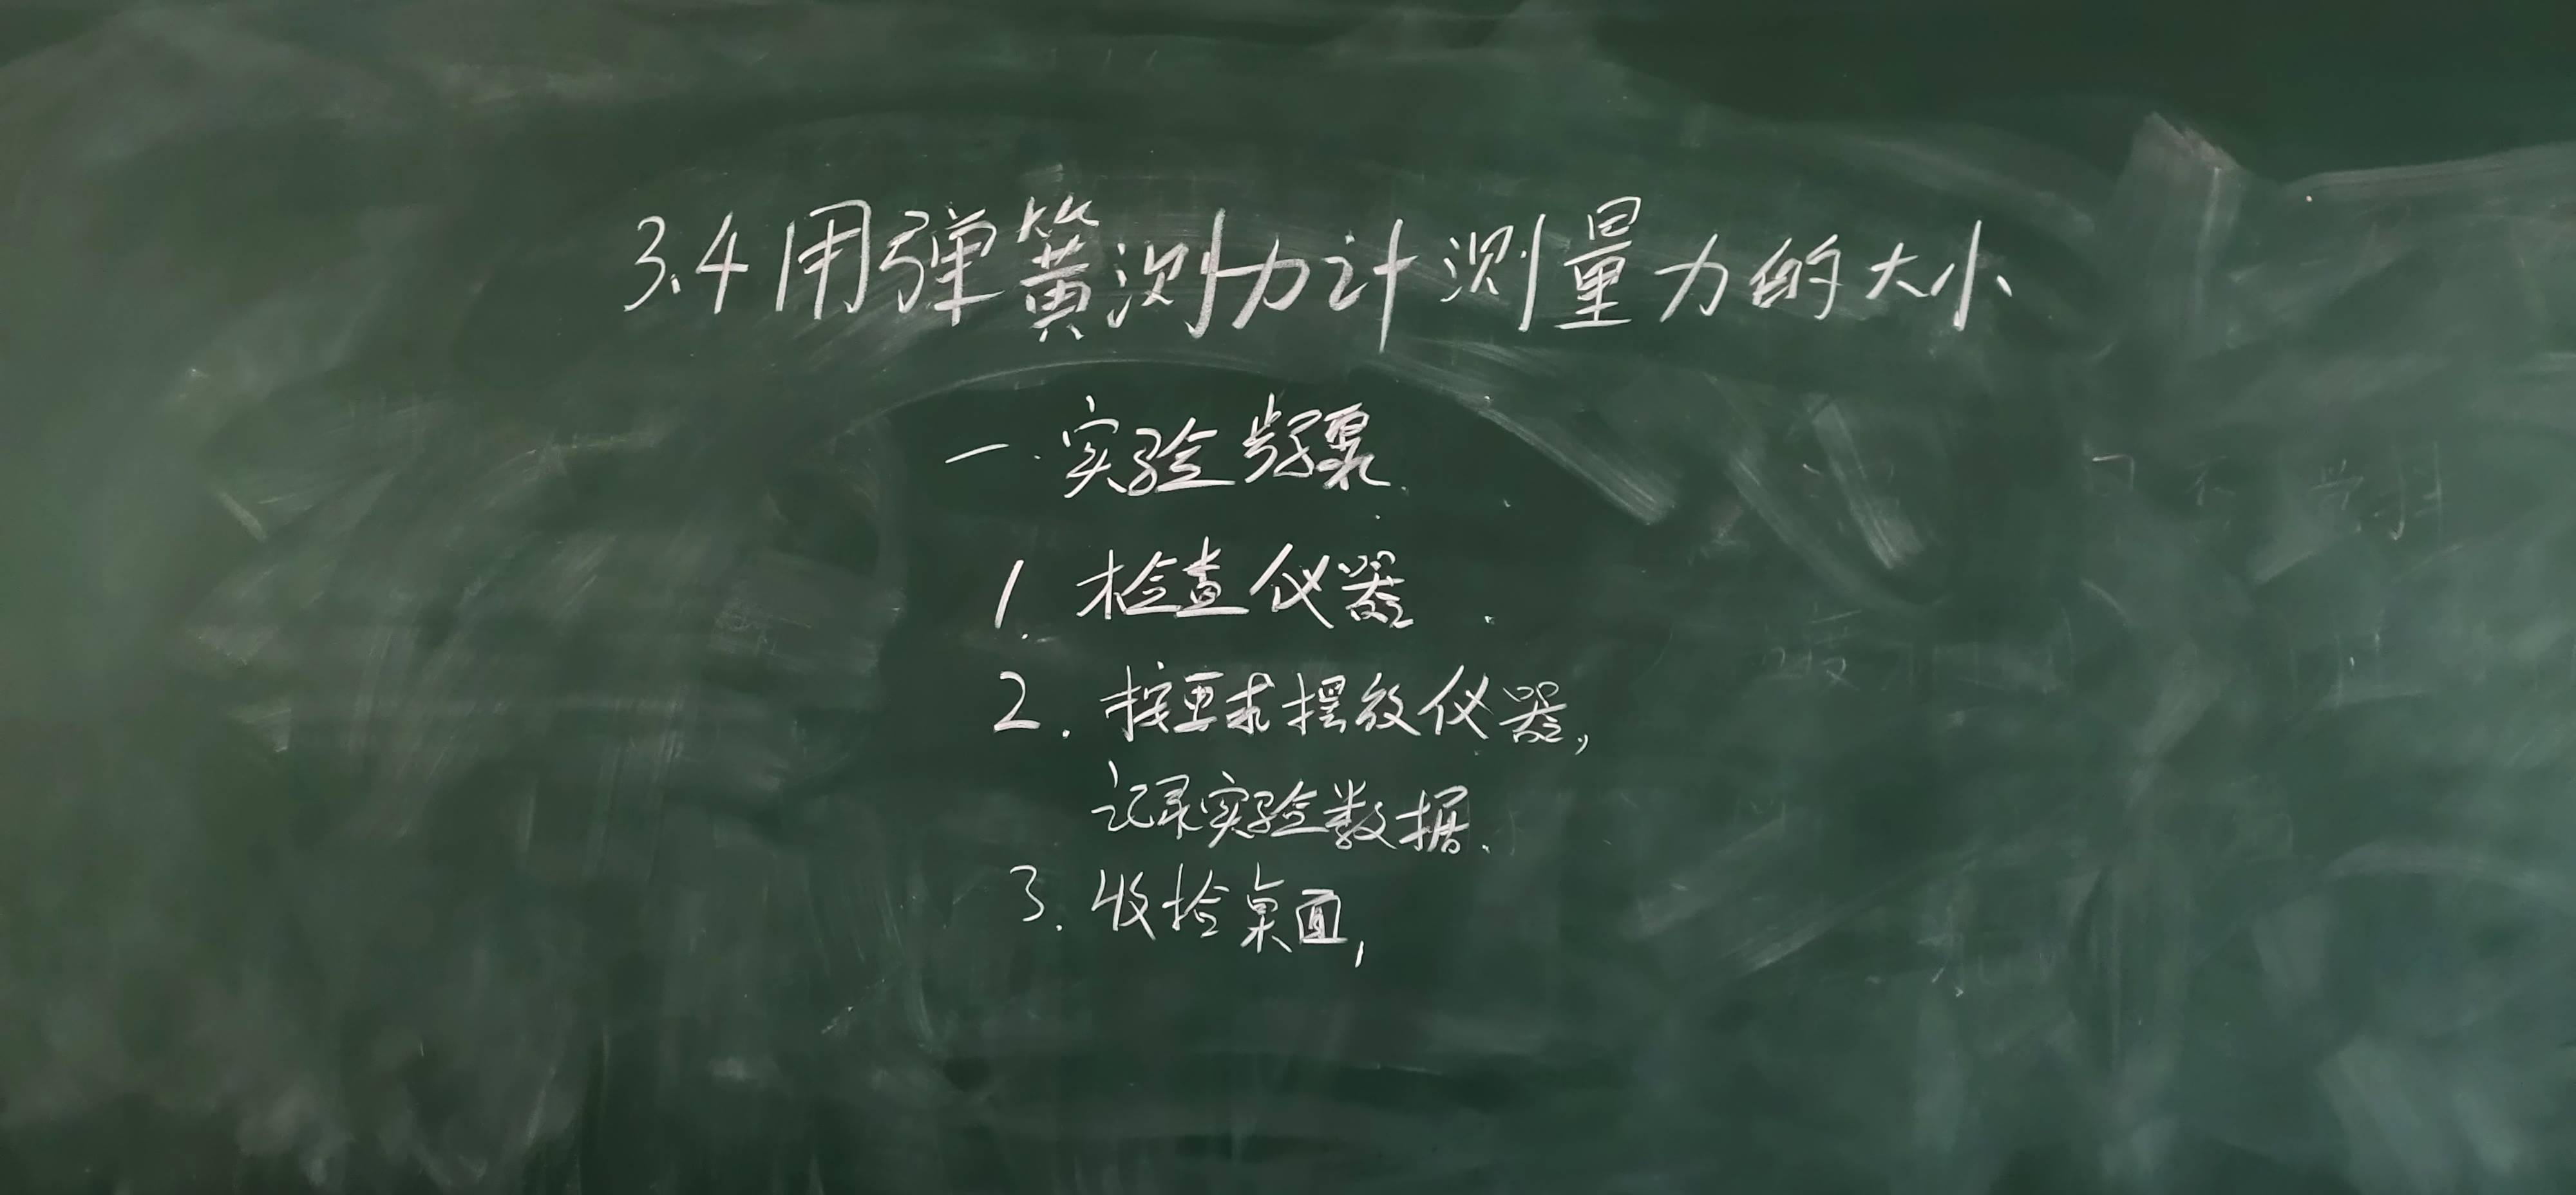 3.4用弹簧测力计测量力的大小
一.实验步骤.
1.检查仪器.
2.按要求摆放仪器,
记录实验数据.
3.收拾桌面,